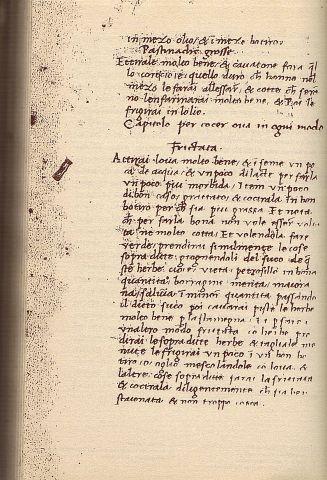 in mezo olio, & i mezo botiro
Pastinache grosse
E tenale molto bene, & cavatone fora q̃l
lo coreciore, quello duro ch̃ hanno nel
mezo le farai allessar, & cotte ch̃ sera
no lenfarinarai molto bene, & Poi le
frigirai in lolio.
Capitolo per cocer ova in ogni modo
Frictata.
Acterai lova molto bene, & iseme un po
co de acqua, & un poco di lacte per farla
un poco piu morbida, Item un poco
di bon caso gractato, & coctrala in bon
botiro per ch̃ sia piu grassa Et nota
ch̃ per farla bona non vole esser volta
ta ne molto cotta, Et volendola fare
verde, prendirai similmente le cose
sopra dicte, giognendoli del suco de q̃
ste herbe cioe, vieta, petrosillo in bona
quantita, borragine, menta, maiora
na, salvia i minor quantita, passando
il dicto suco poi cavarai piste le herbe
molto bene p la stamegna,
unaltro modo frictata co herbe p
dirai le sopra dicte herbe & tagliale mi
nute le frigirai un poco i un bon bo
tiro, o oglio, mescolandole co lova, &
laltre cose sopradicte farai la frictata
& coctrala diligentemente ch̃ sia ben
stasonata, & non troppo cotta.